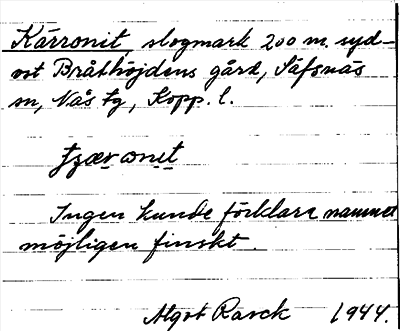 Kärronit, slogmark 200 m. syd-
ost Bråthöjdens gård, Säfsnäs
sn, Nås tg, Kopp. l.
tȷæronit
Ingen kunde förklara namnet
möjligen finskt.
Algot Rasck 1944.